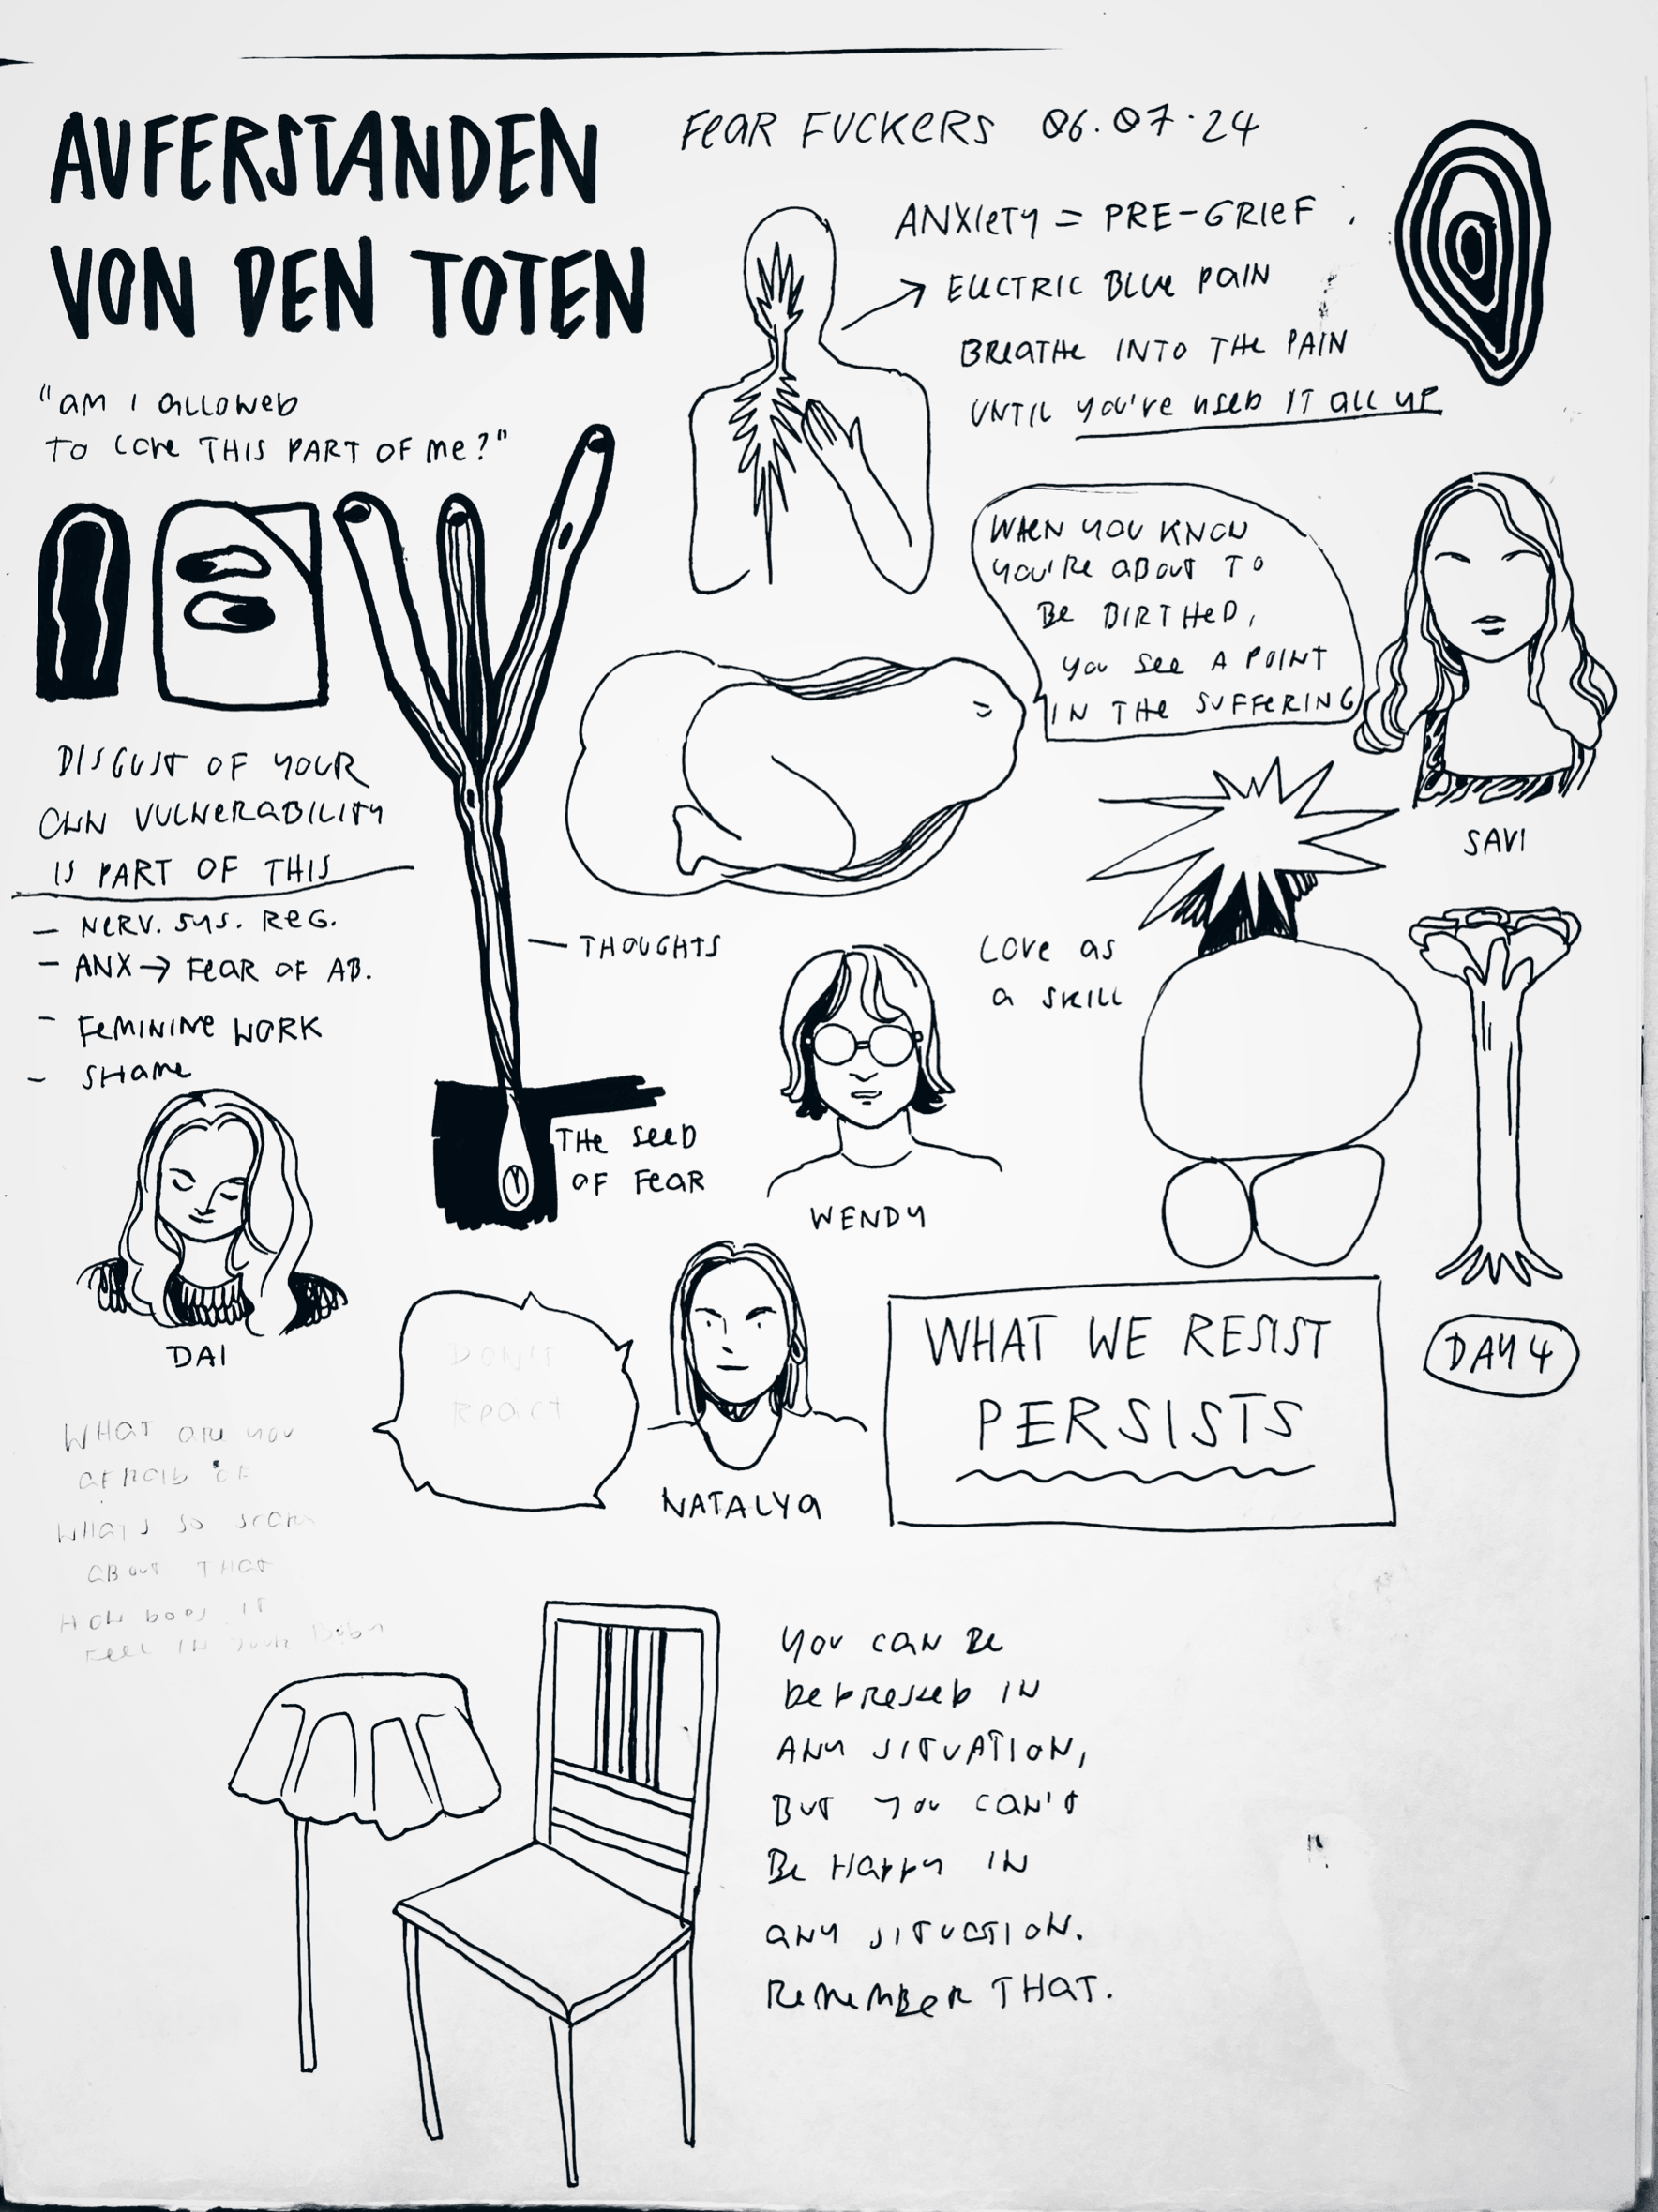 AUFERSTANDEN
VON DEN TOTEN
FEAR FUCKERS 06.07.24
ANXIETY = PRE-GRIEF
→ ELECTRIC BLUE PAIN
BREATHE INTO THE PAIN
UNTIL YOU'VE USED IT ALL UP
"AM I ALLOWED
TO LOVE THIS PART OF ME?"
WHEN YOU KNOW
YOU'RE ABOUT TO
BE BIRTHED,
YOU SEE A POINT
IN THE SUFFERING
SAVI
DISGUST OF YOUR
OWN VULNERABILITY
IS PART OF THIS
- NERV. SYS. REG.
- ANX → FEAR OF AB.
- FEMININE WORK
- SHAME
- THOUGHTS
LOVE AS
A SKILL
THE SEED
OF FEAR
WENDY
DAI
DON'T
REACT
NATALYA
WHAT WE RESIST
PERSISTS
DAY 4
WHAT ARE YOU
AFRAID OF
WHAT'S SO SCARY
ABOUT THAT
HOW DOES IT
FEEL IN YOUR BODY
YOU CAN BE
DEPRESSED IN
ANY SITUATION,
BUT YOU CAN'T
BE HAPPY IN
ANY SITUATION.
REMEMBER THAT.